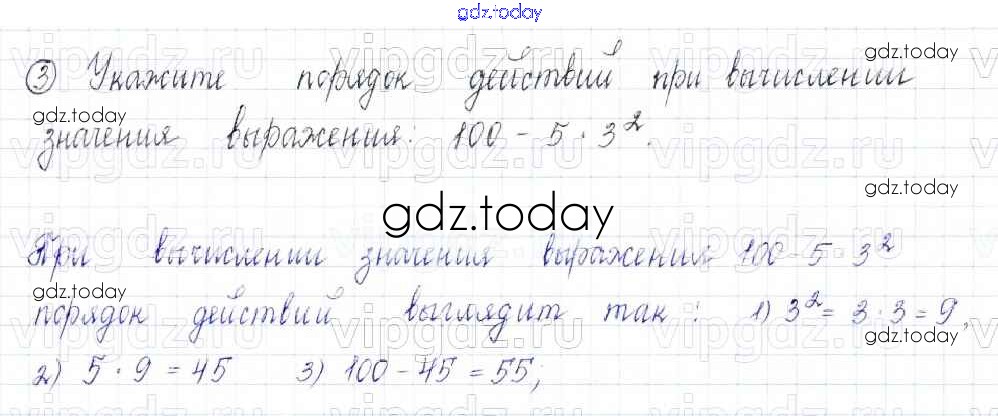 gdz.today
vipgdz.ru vipgdz.ru vipgdz.ru
gdz.today
③ Укажите порядок действий при вычислении
gdz.today
значения выражения: 100 - 5 · 3².
gdz.today
gdz.today
При вычислении значения выражения 100 - 5 · 3²
gdz.today
порядок действий выглядит так: 1) 3² = 3 · 3 = 9,
gdz.today
2) 5 · 9 = 45 3) 100 - 45 = 55;